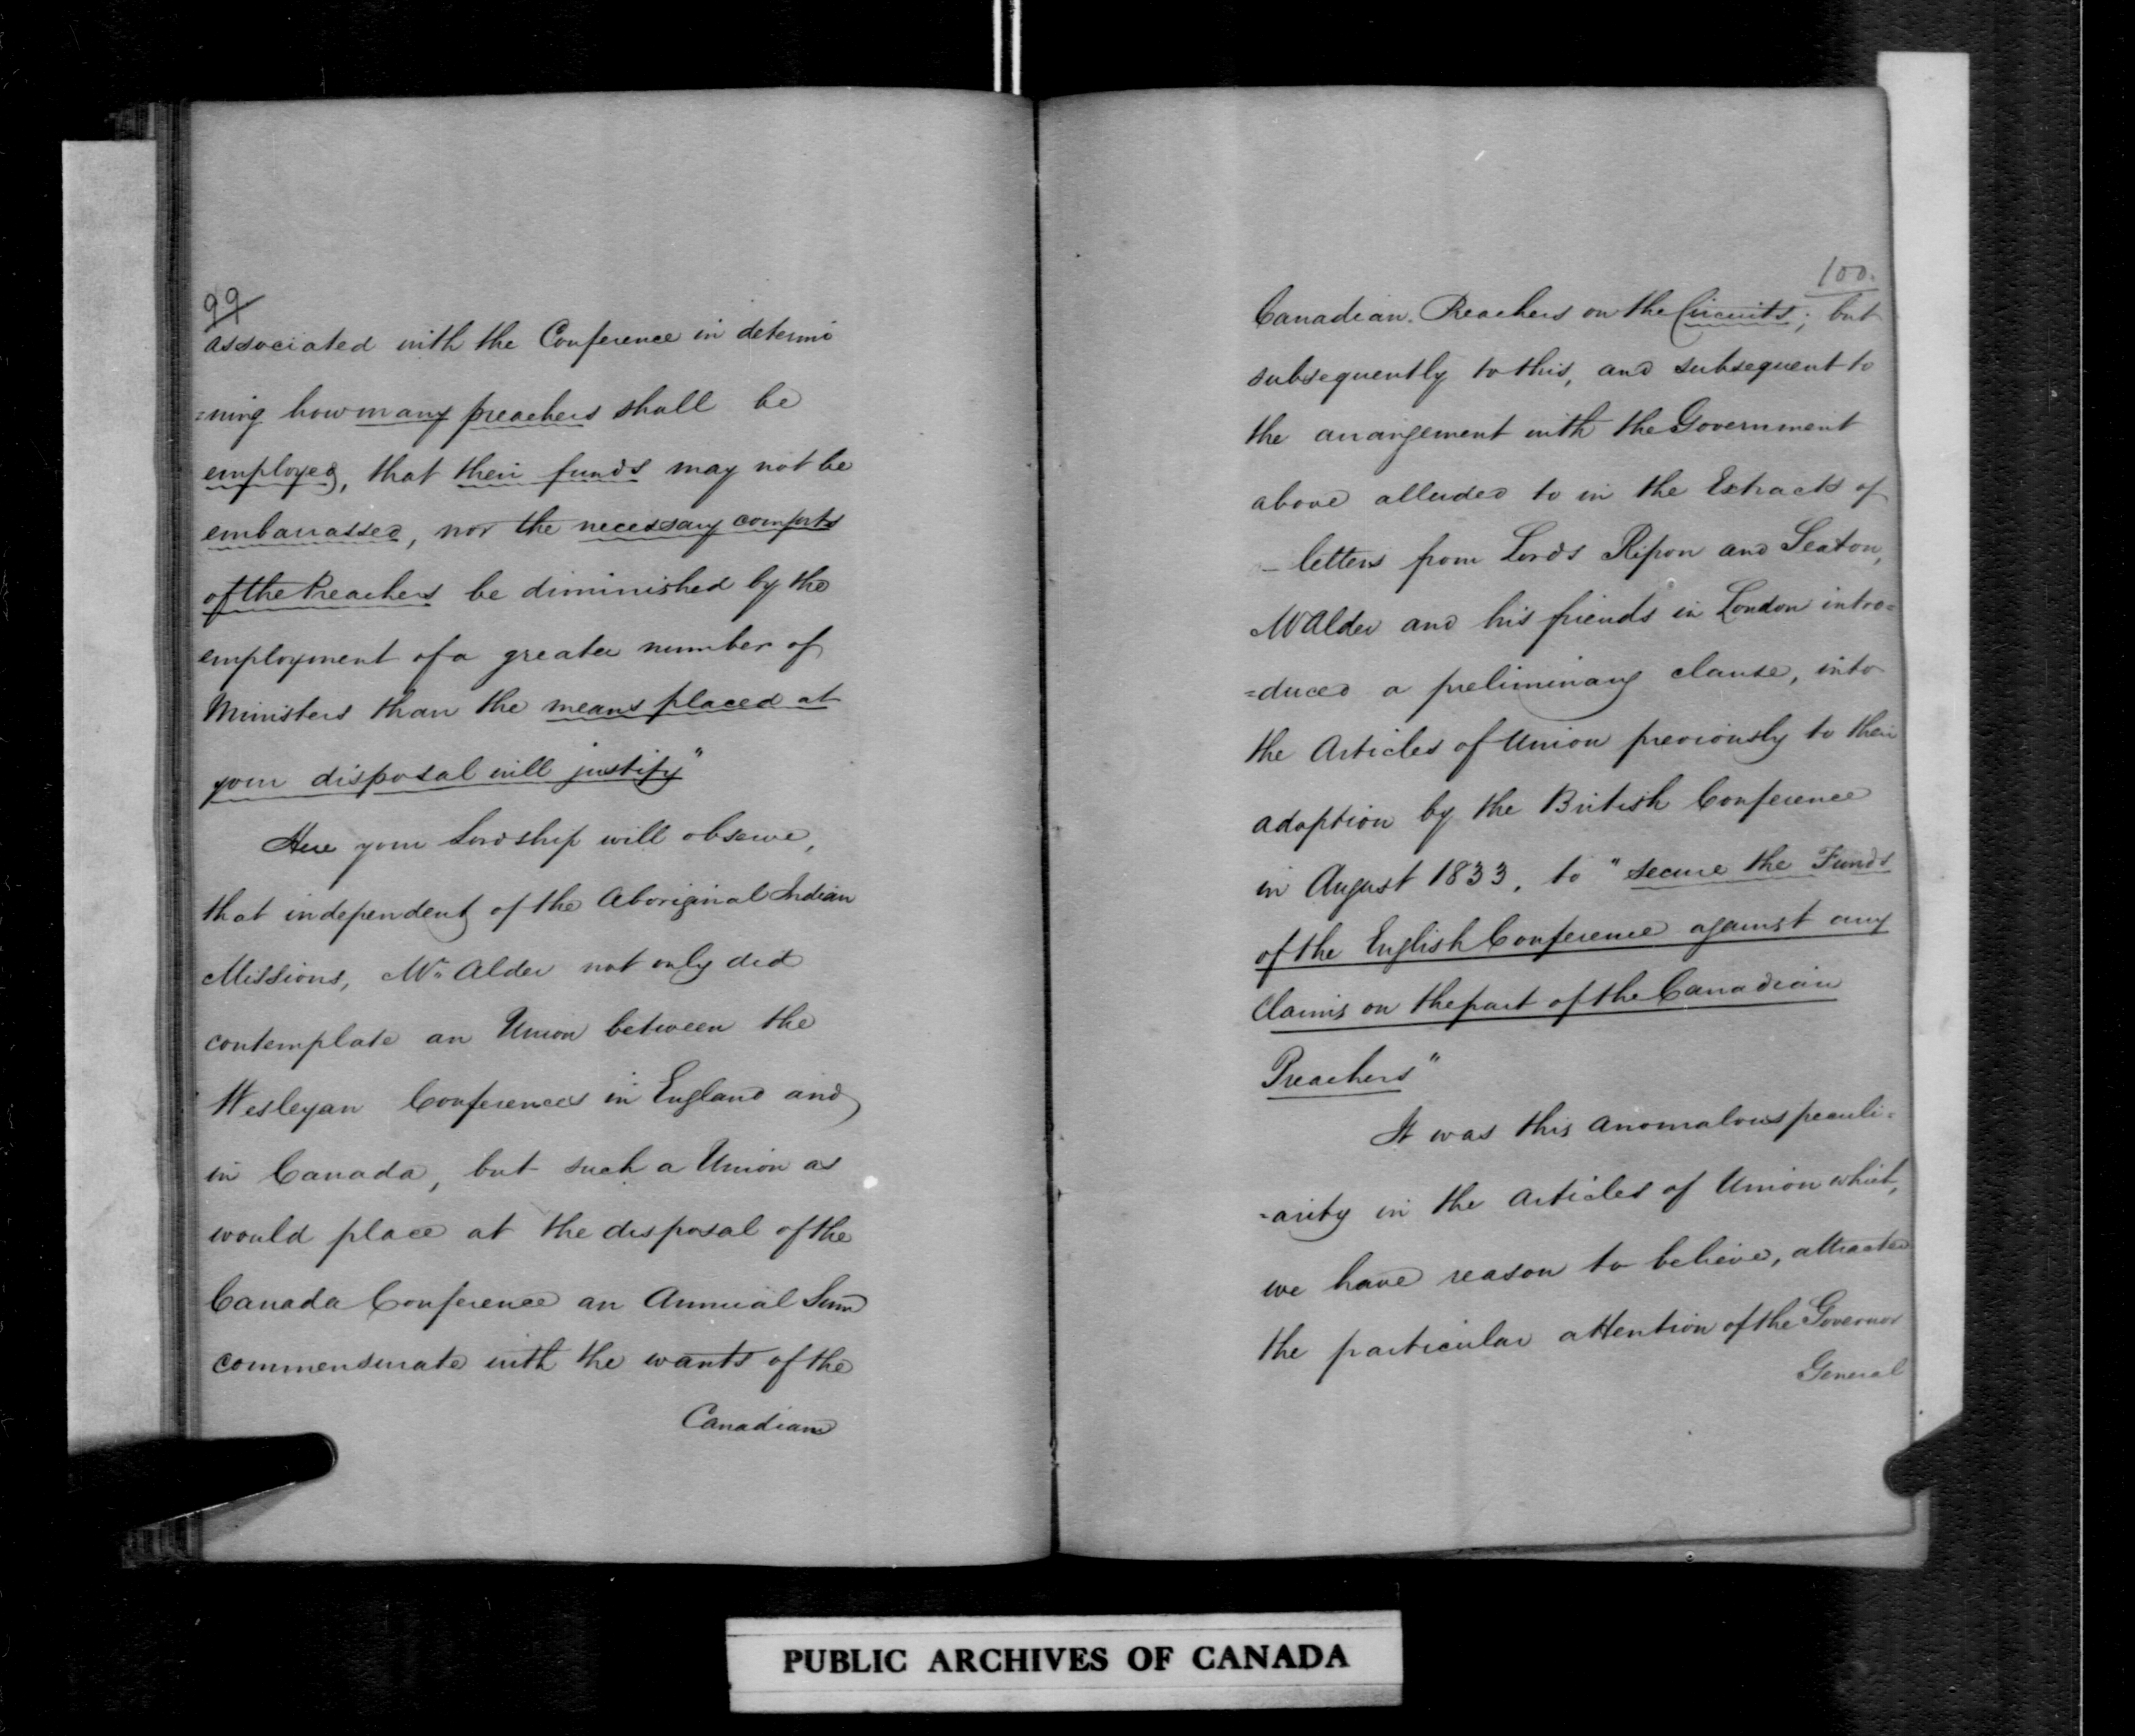 99
associated with the Conference in determi
=ning how many preachers shall be
employed, that their funds may not be
embarrassed, nor the necessary comforts
of the Preachers be diminished by the
employment of a greater number of
Ministers than the means placed at
your disposal will justify"
Here your Lordship will observe,
that independent of the Aboriginal Indian
Missions, Mr Alder not only did
contemplate an Union between the
Wesleyan Conferences in England and
in Canada, but such a Union as
would place at the disposal of the
Canada Conference an Annual Sum
commensurate with the wants of the
Canadian
100.
Canadian Preachers on the Circuits; but
subsequently to this, and subsequent to
the arrangement with the Government
above alluded to in the Extracts of
- letters from Lords Ripon and Seaton,
Mr Alder and his friends in London intro=
=duced a preliminary clause, into
the Articles of Union previously to their
adoption by the British Conference
in August 1833, to "secure the Funds
of the English Conference against any
Claims on the part of the Canadian
Preachers"
It was this anomalous peculi=
-arity in the Articles of Union which,
we have reason to believe, attracted
the particular attention of the Governor
General
PUBLIC ARCHIVES OF CANADA